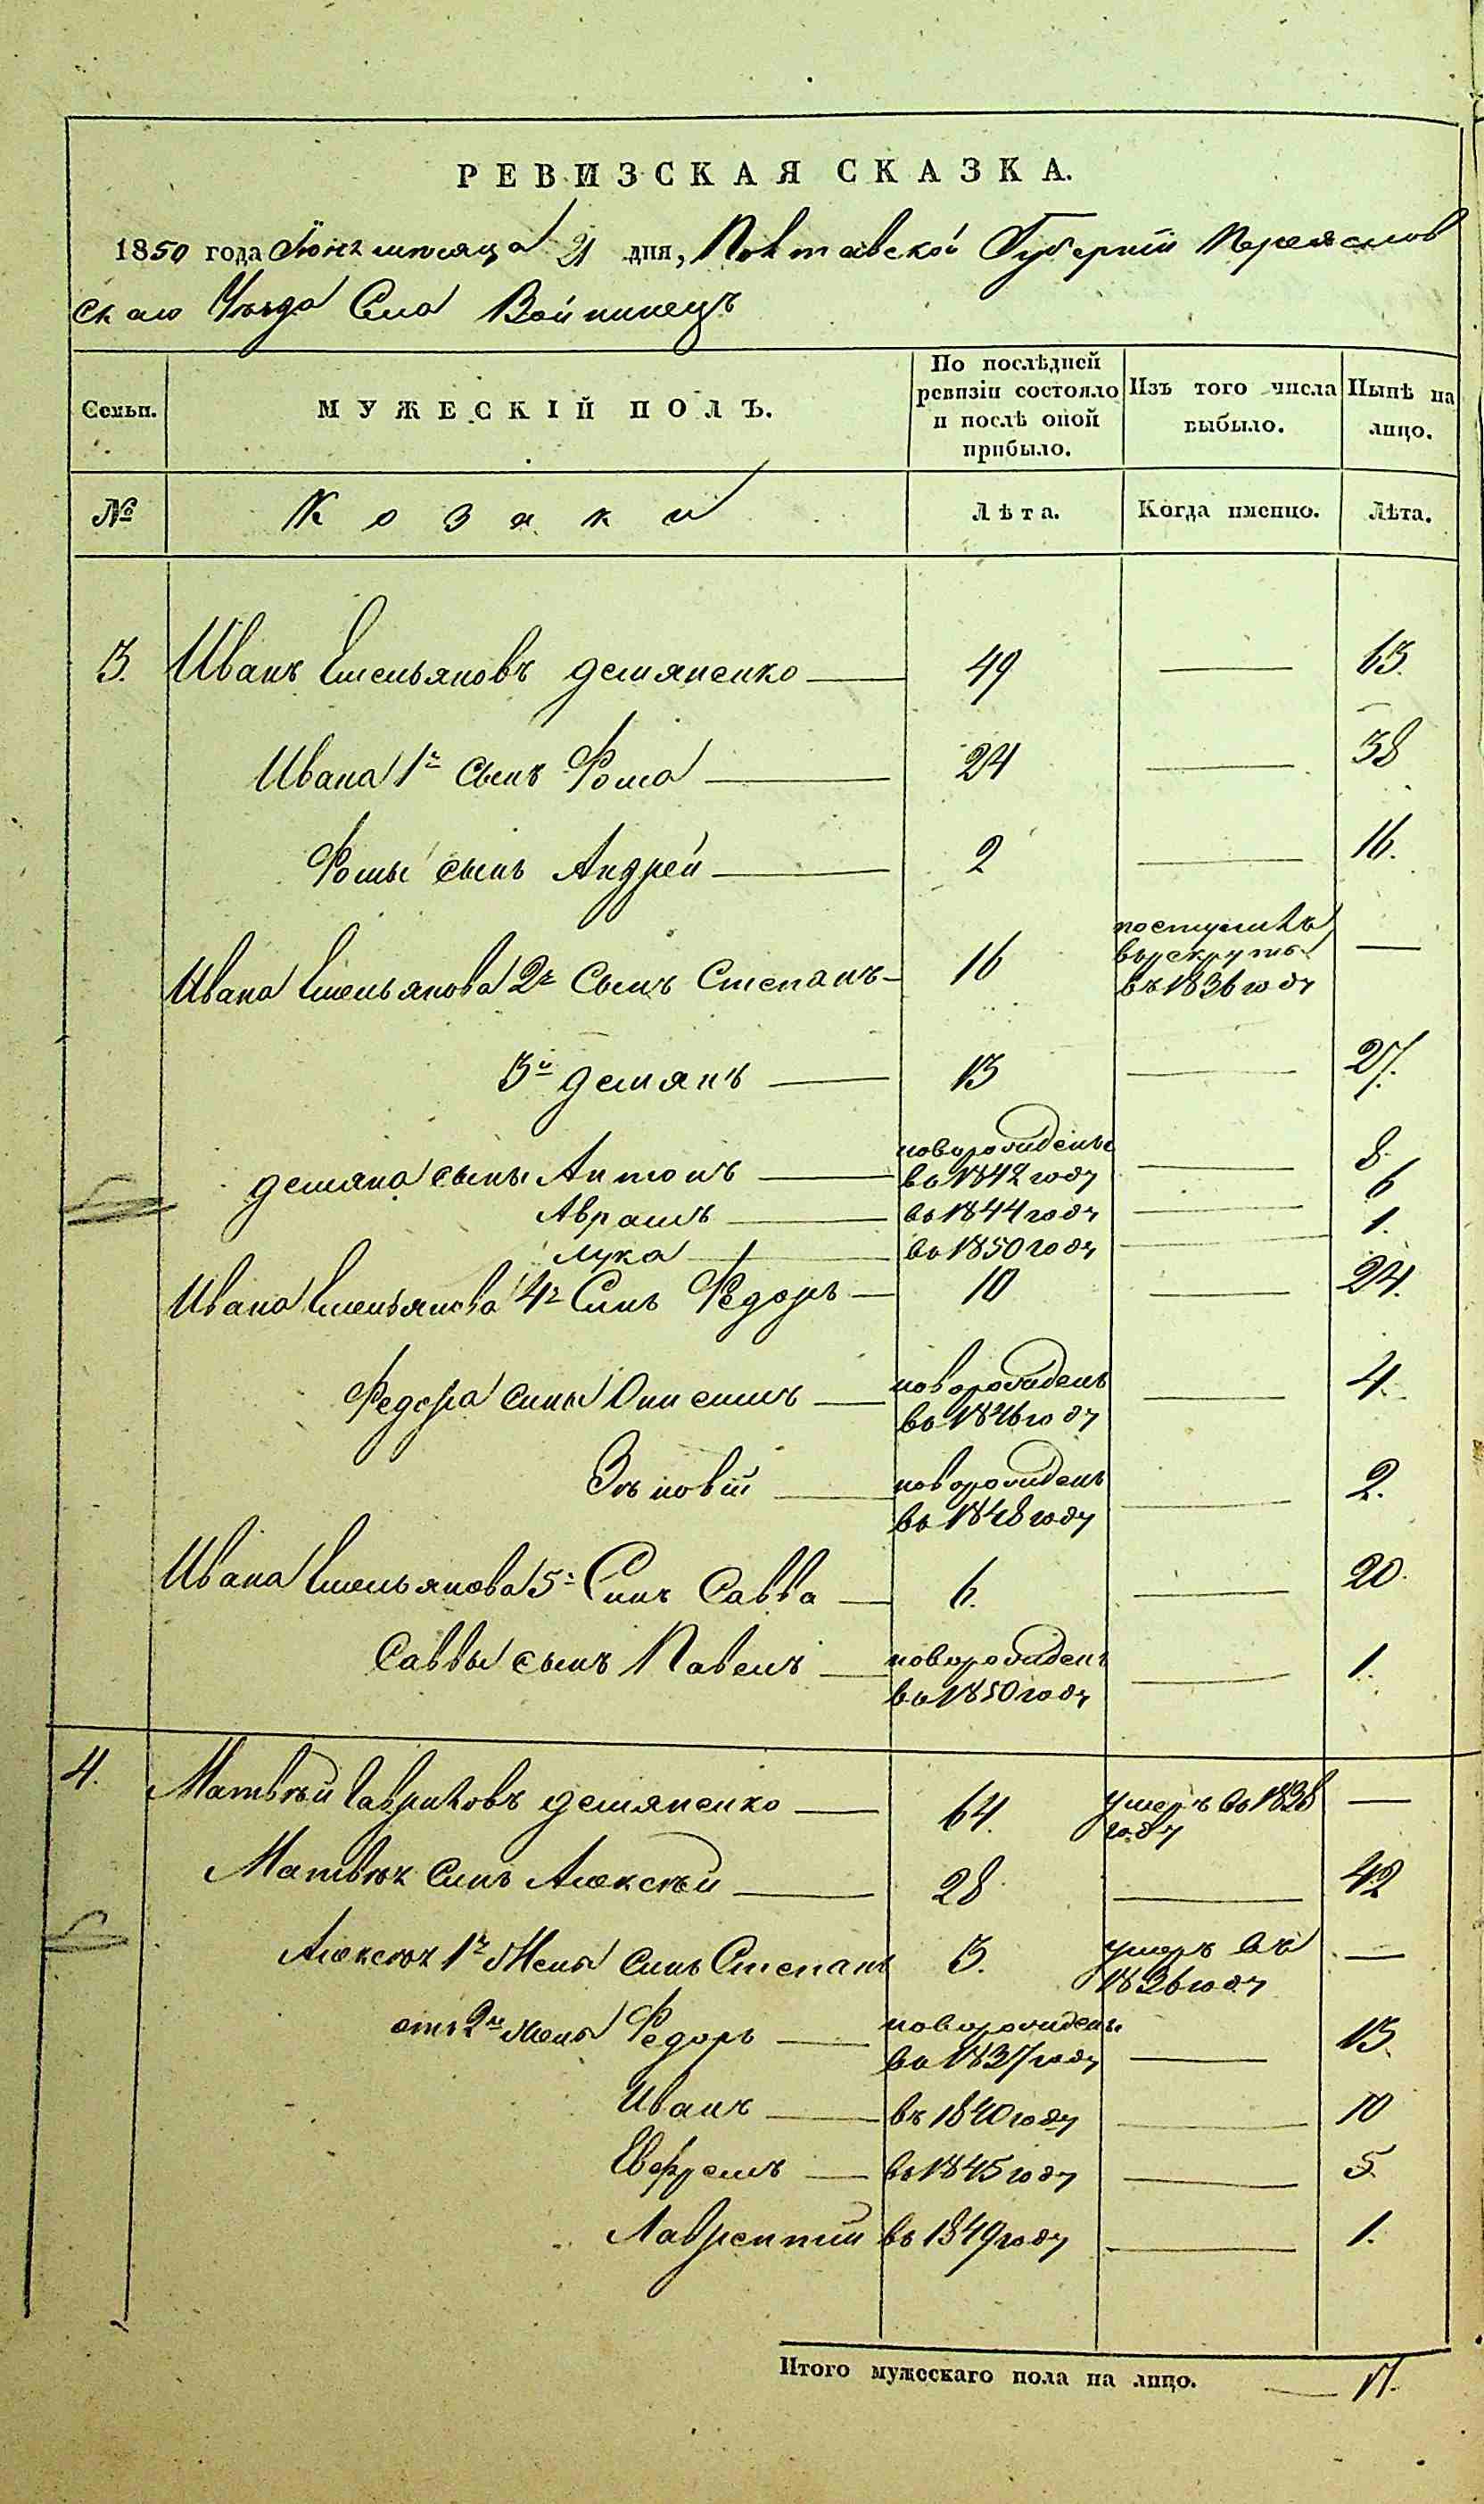 РЕВИЗСКАЯ СКАЗКА.
1850 года Іюня мѣсяца 21 дня, Полтавской Губерніи Переяслов
скаго Уѣзда Села Войнинецъ
Семьи. МУЖЕСКІЙ ПОЛЪ. По послѣдней ревизіи состояло и послѣ оной прибыло. Изъ того числа выбыло. Нынѣ на лицо.
№ Козаки Лѣта. Когда именно. Лѣта.
3. Иванъ Емельяновъ Демяненко 49 — 63.
Ивана 1й сынъ Фома 24 — 38
Фомы сынъ Андрей 2 — 16.
Ивана Емельянова 2й Сынъ Степанъ 16 поступилъ въ рекруты въ 1836 году —
3й Демянъ 13 — 27.
Демяна сыны Антонъ новорожденъ во 1842 году — 8.
Аврамъ во 1844 году — 6
Лука во 1850 году — 1.
Ивана Емельянова 4й Синъ Федоръ 10 — 24.
Федора сины Онисимъ новорожденъ во 1846 году — 4.
Зѣновій новорожденъ во 1848 году — 2.
Ивана Емельянова 5й Синъ Савва 6. — 20.
Саввы сынъ Павелъ новорожденъ во 1850 году — 1.
4. Матвѣй Гавриловъ Демяненко 64. умеръ во 1838 году —
Матвѣя Синъ Алексѣй 28 — 42
Алексѣя 1й Жены синъ Степанъ 3. умеръ въ 1836 году —
отъ 2й жены Федоръ новорожденъ во 1837 году — 13.
Иванъ въ 1840 году — 10
Евфремъ во 1845 году — 5.
Лаврентій во 1849 году — 1.
Итого мужескаго пола на лицо. — 17.